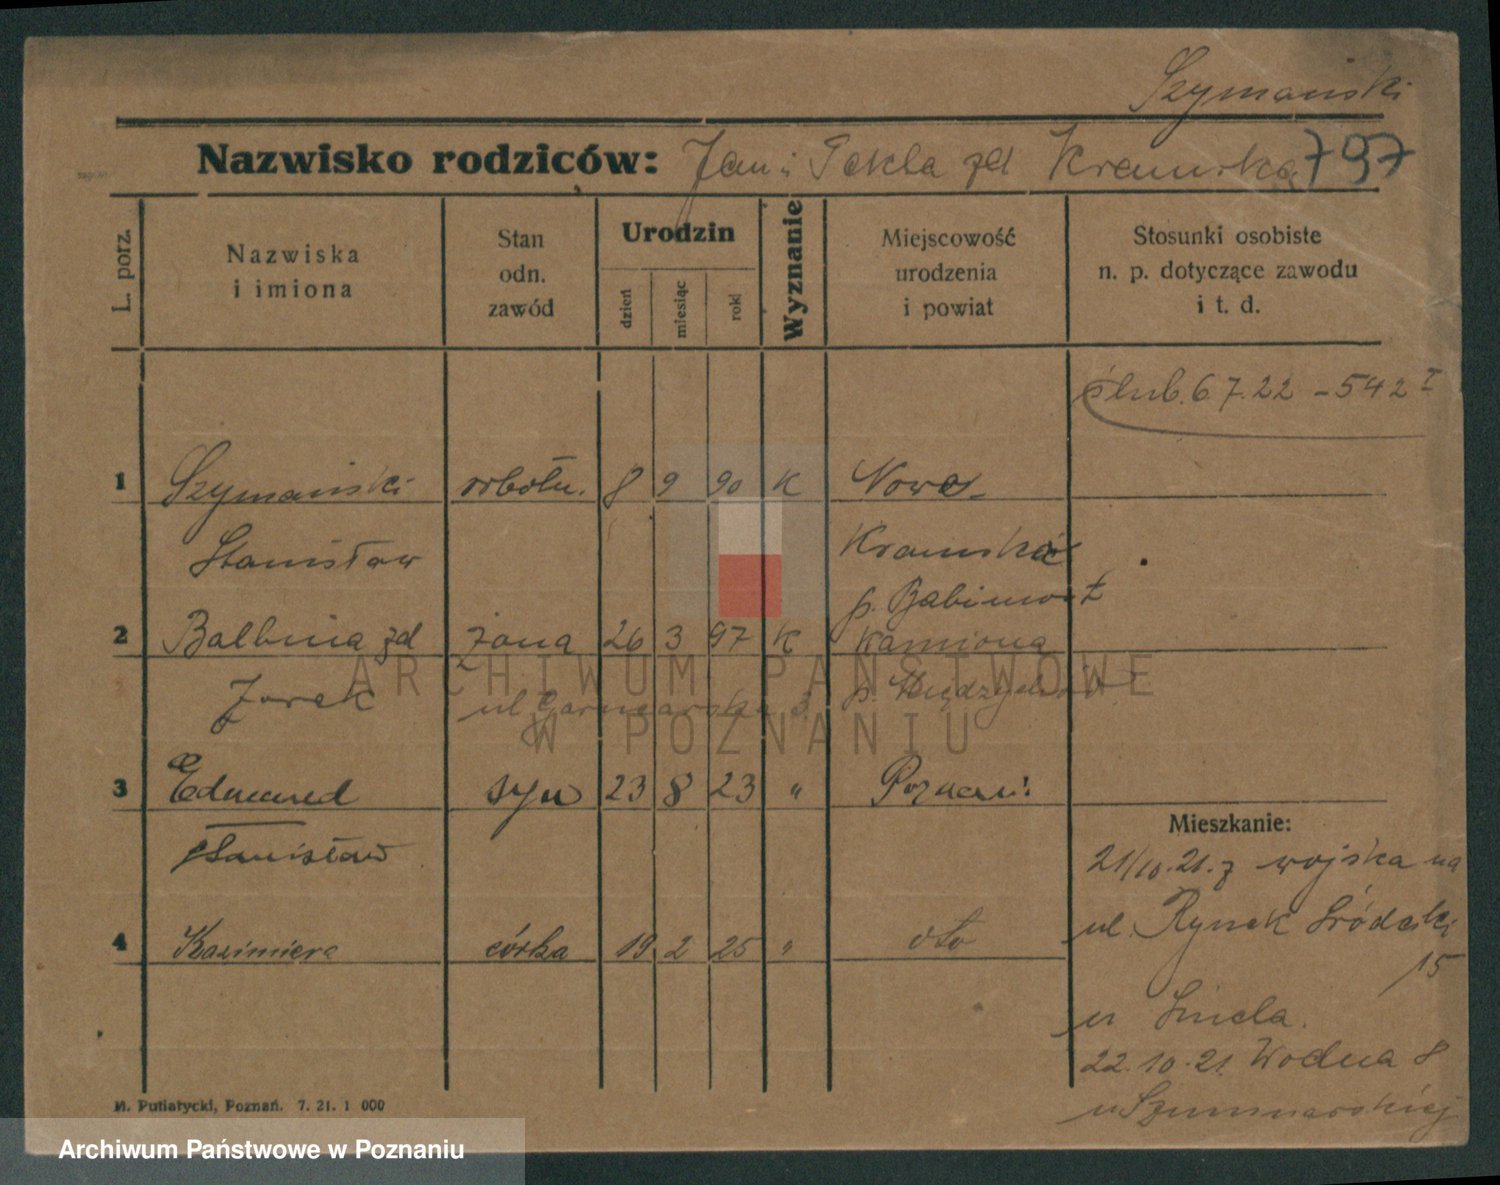 Szymański
Nazwisko rodziców: Jan i Tekla zd Kramska 797
L. porz.
Nazwiska
i imiona
Stan
odn.
zawód
Urodzin
dzień
miesiąc
rok
Wyznanie
Miejscowość
urodzenia
i powiat
Stosunki osobiste
n. p. dotyczące zawodu
i t. d.
ślub. 6 7. 22 - 542 I
1 Szymański robotn. 8 9 90 K Nowe
Stanisław Kramsko
p. Babimost
2 Balbina zd żona 26 3 97 K Kamiona
Jarek ul Garncarska 3 p. Międzychód
3 Edmund syn 23 8 23 " Poznań
Stanisław
4 Kazimiera córka 19 2 25 " dto
Mieszkanie:
21/10. 21. z wojska na
ul. Rynek Śródecki
15
u
22. 10. 21. Wodna 8
u
M. Putiatycki, Poznań. 7. 21. 1 000
ARCHIWUM PAŃSTWOWE
W POZNANIU
Archiwum Państwowe w Poznaniu